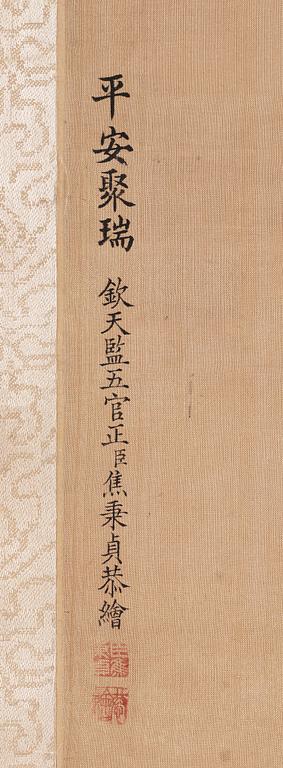 平安聚瑞 欽天監五官正臣焦秉貞恭繪